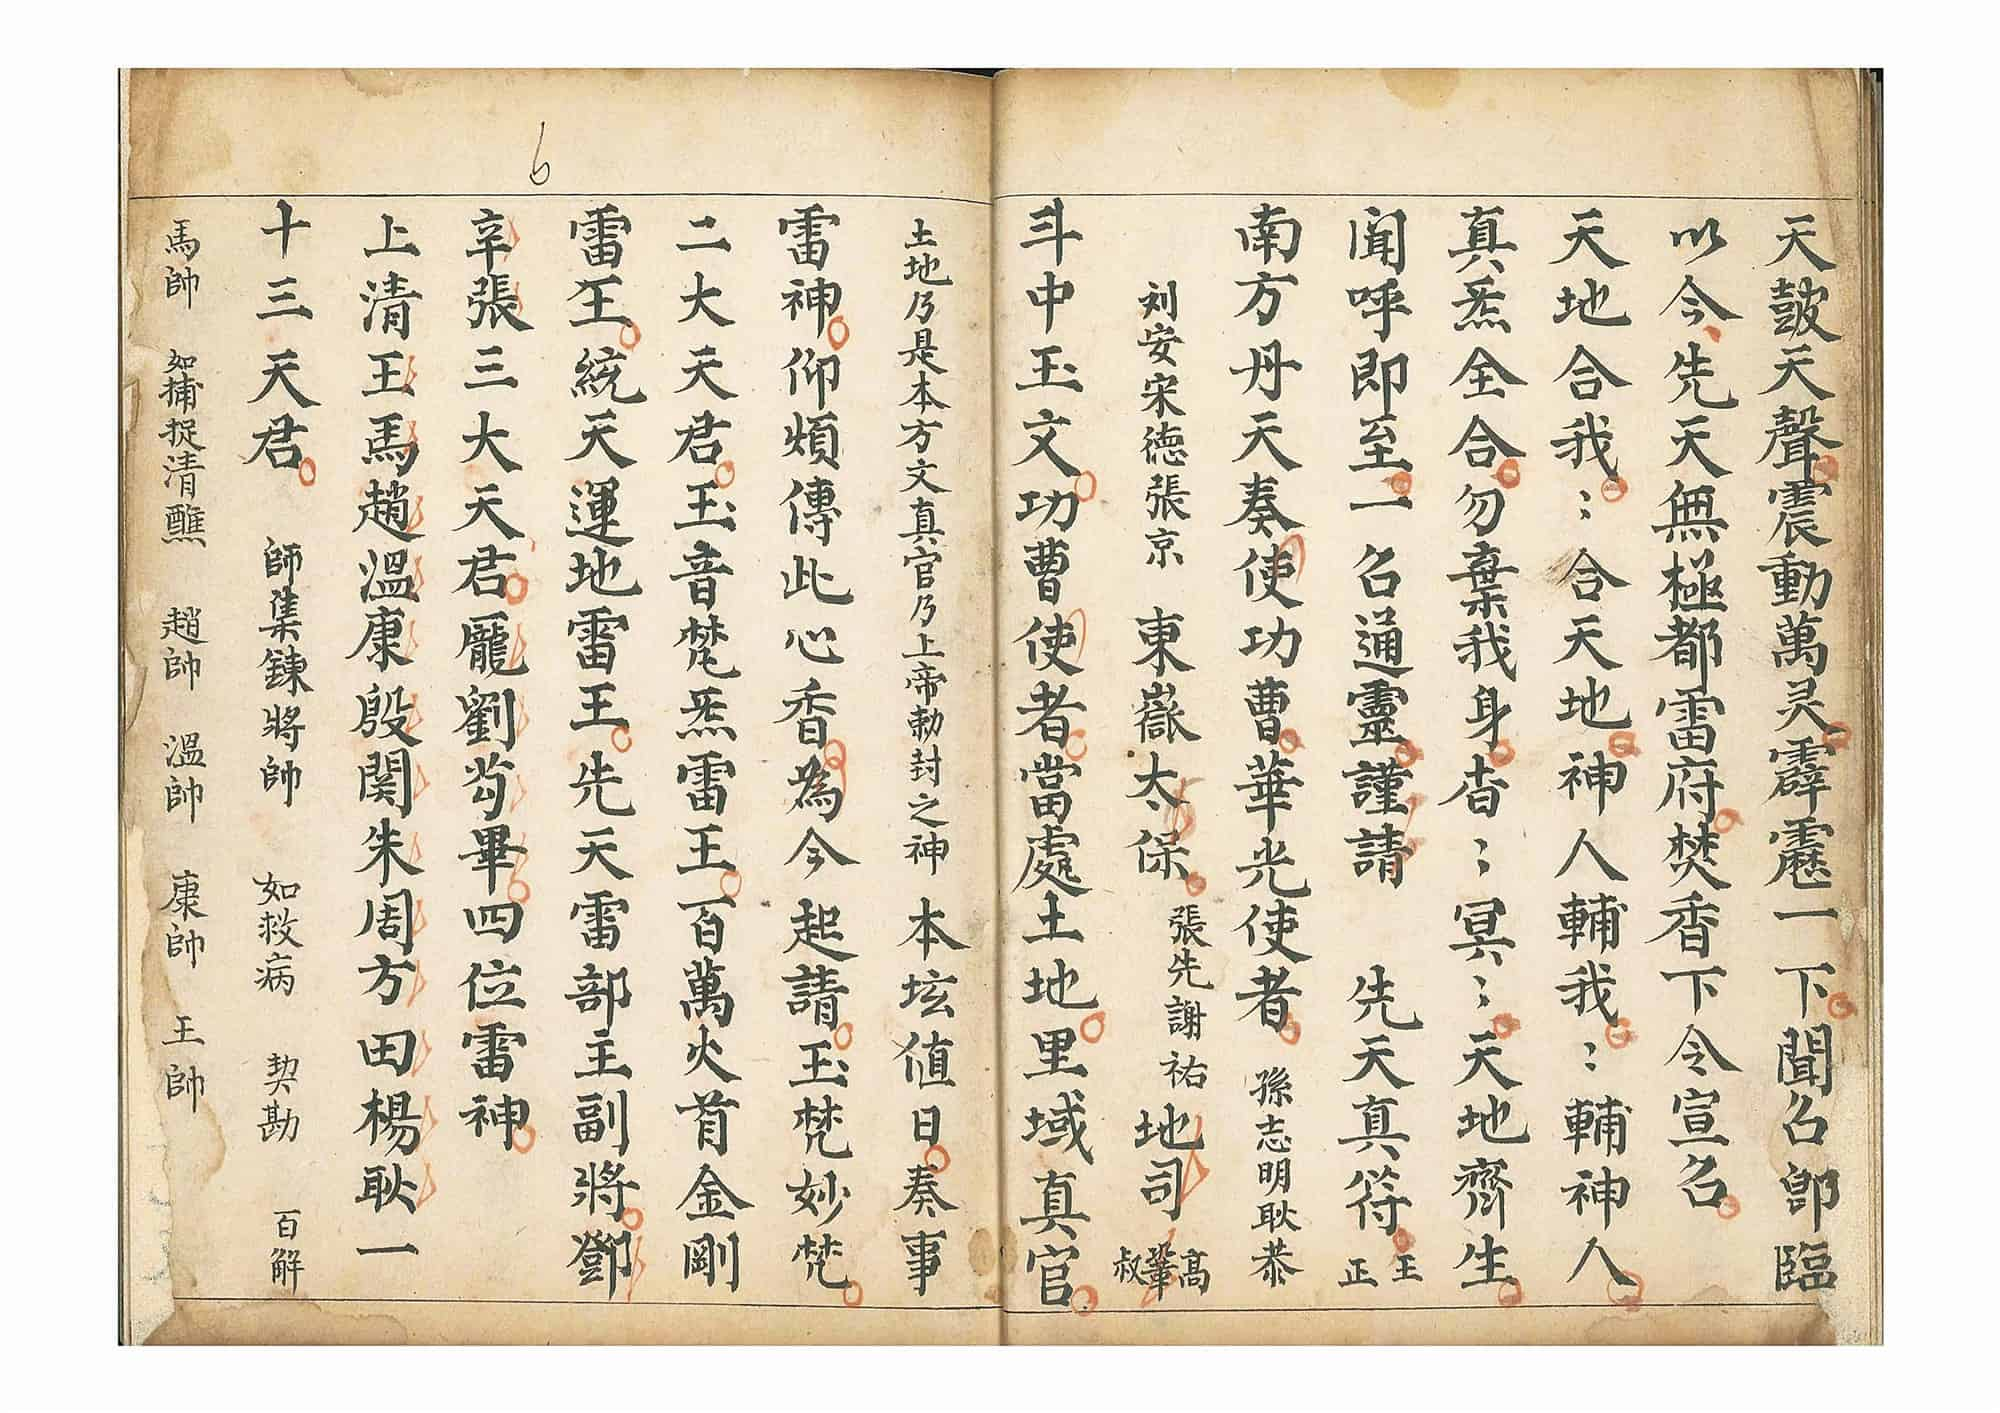 天皷天聲震動萬灵霹靂一下聞召即臨
以今先天無極都雷府焚香下令宣召
天地合我〻合天地神人輔我〻輔神人
真炁全合勿棄我身杳〻冥〻天地齊生
聞呼即至一召通靈謹請　先天真符王正
南方丹天奏使功曹華光使者孫志明耿恭
刘安宋德張京　東嶽太保張先謝祐地司高鞏叔
斗中玉文功曹使者當處土地里域真官
土地乃是本方文真官乃上帝勅封之神　本坛值日奏事
雷神仰煩傳此心香為今起請玉梵妙梵
二大天君玉音梵炁雷王百萬火首金剛
雷王統天運地雷王先天雷部主副將鄧
辛張三大天君龐劉苟畢四位雷神
上清王馬趙溫康殷関朱周方田楊耿一
十三天君　師集鍊將帥　如救病　契勘　百解
馬帥　如捕捉清醮　趙帥　溫帥　康帥　王帥
6